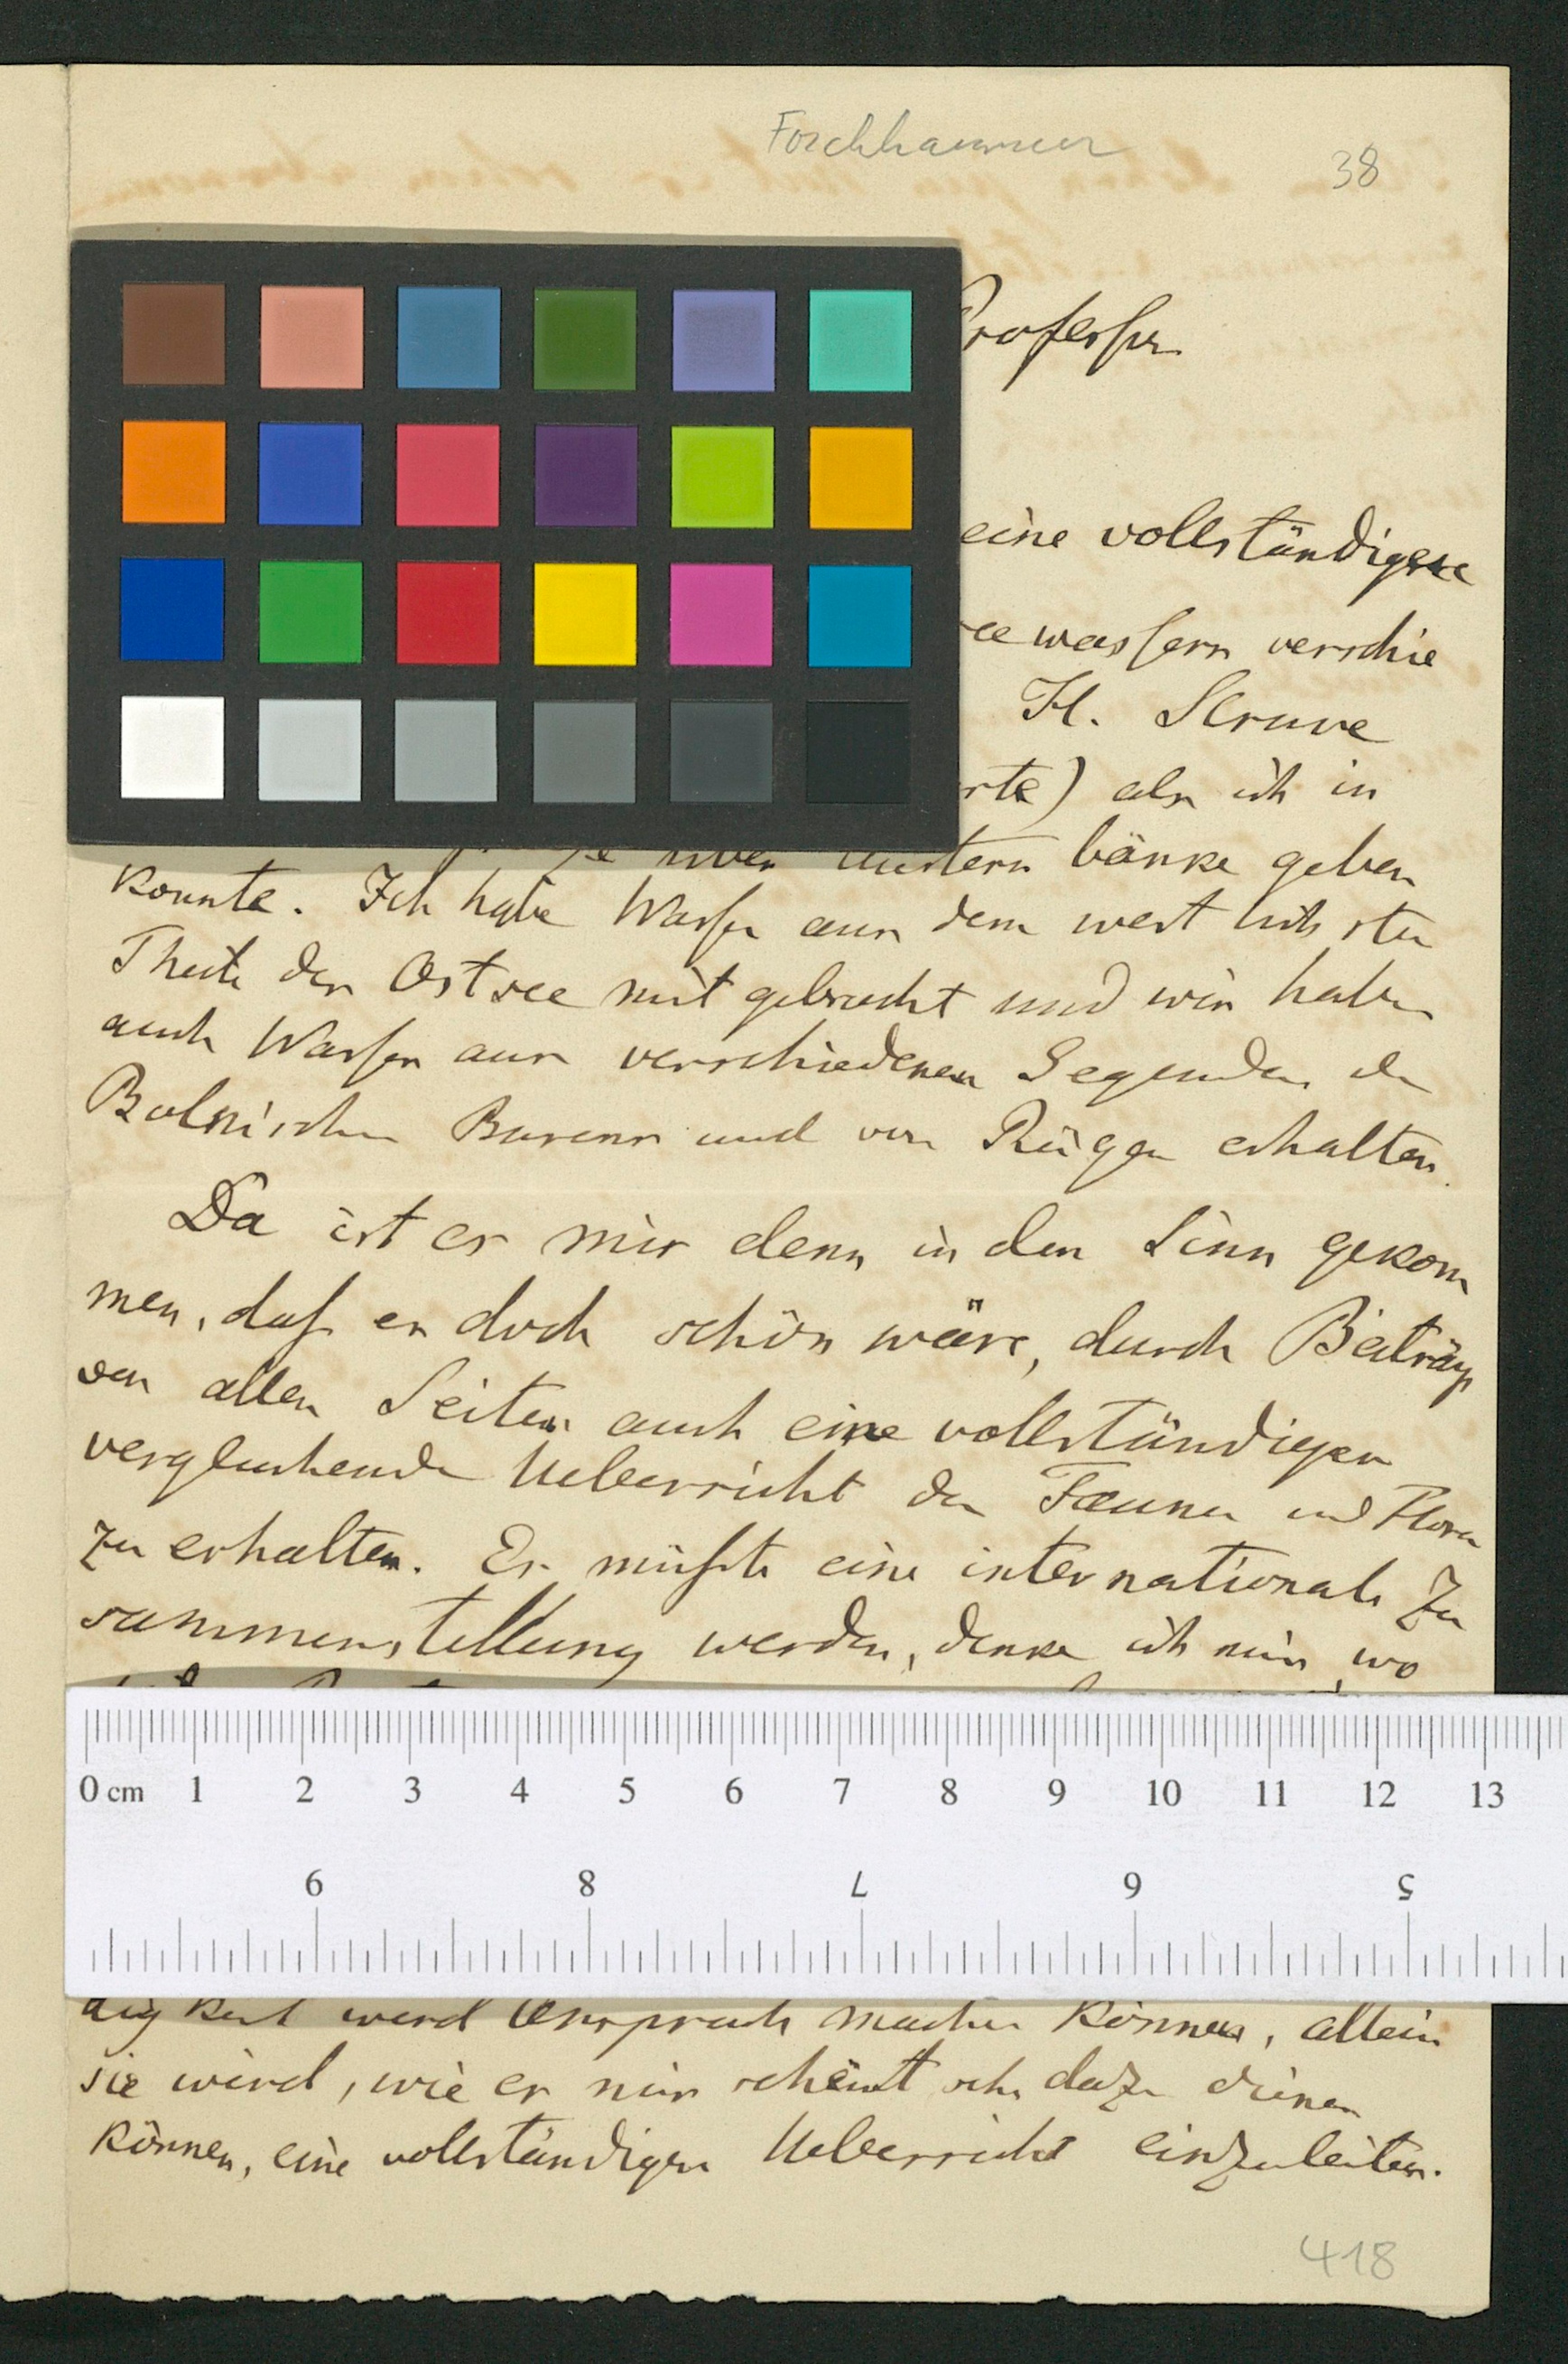 Forchhammer
38
Professor
eine vollständigere
wassern verschie
H. Struve
rte) als ich in
über Austern bänke geben
konnte. Ich habe Wasser aus dem westlichsten
Theile der Ostsee mit gebracht und wir haben
auch Wasser aus verschiedenen Gegenden des
Baltischen Busens und von Rügen erhalten.
Da ist es mir denn in den Sinn gekom
men, daß es doch schön wäre, durch Beiträge
von allen Seiten auch eine vollständigere
vergleichende Uebersicht der Fauna und Flora
zu erhalten. Es müßte eine internationale Zu
sammenstellung werden, denke ich mir, wo
0 cm 1 2 3 4 5 6 7 8 9 10 11 12 13
9 8 7 6 5
digkeit werd Anspruch machen können, allein
sie wird, wie es mir scheint sehr dazu dienen
können, eine vollständigere Uebersicht einzuleiten.
418